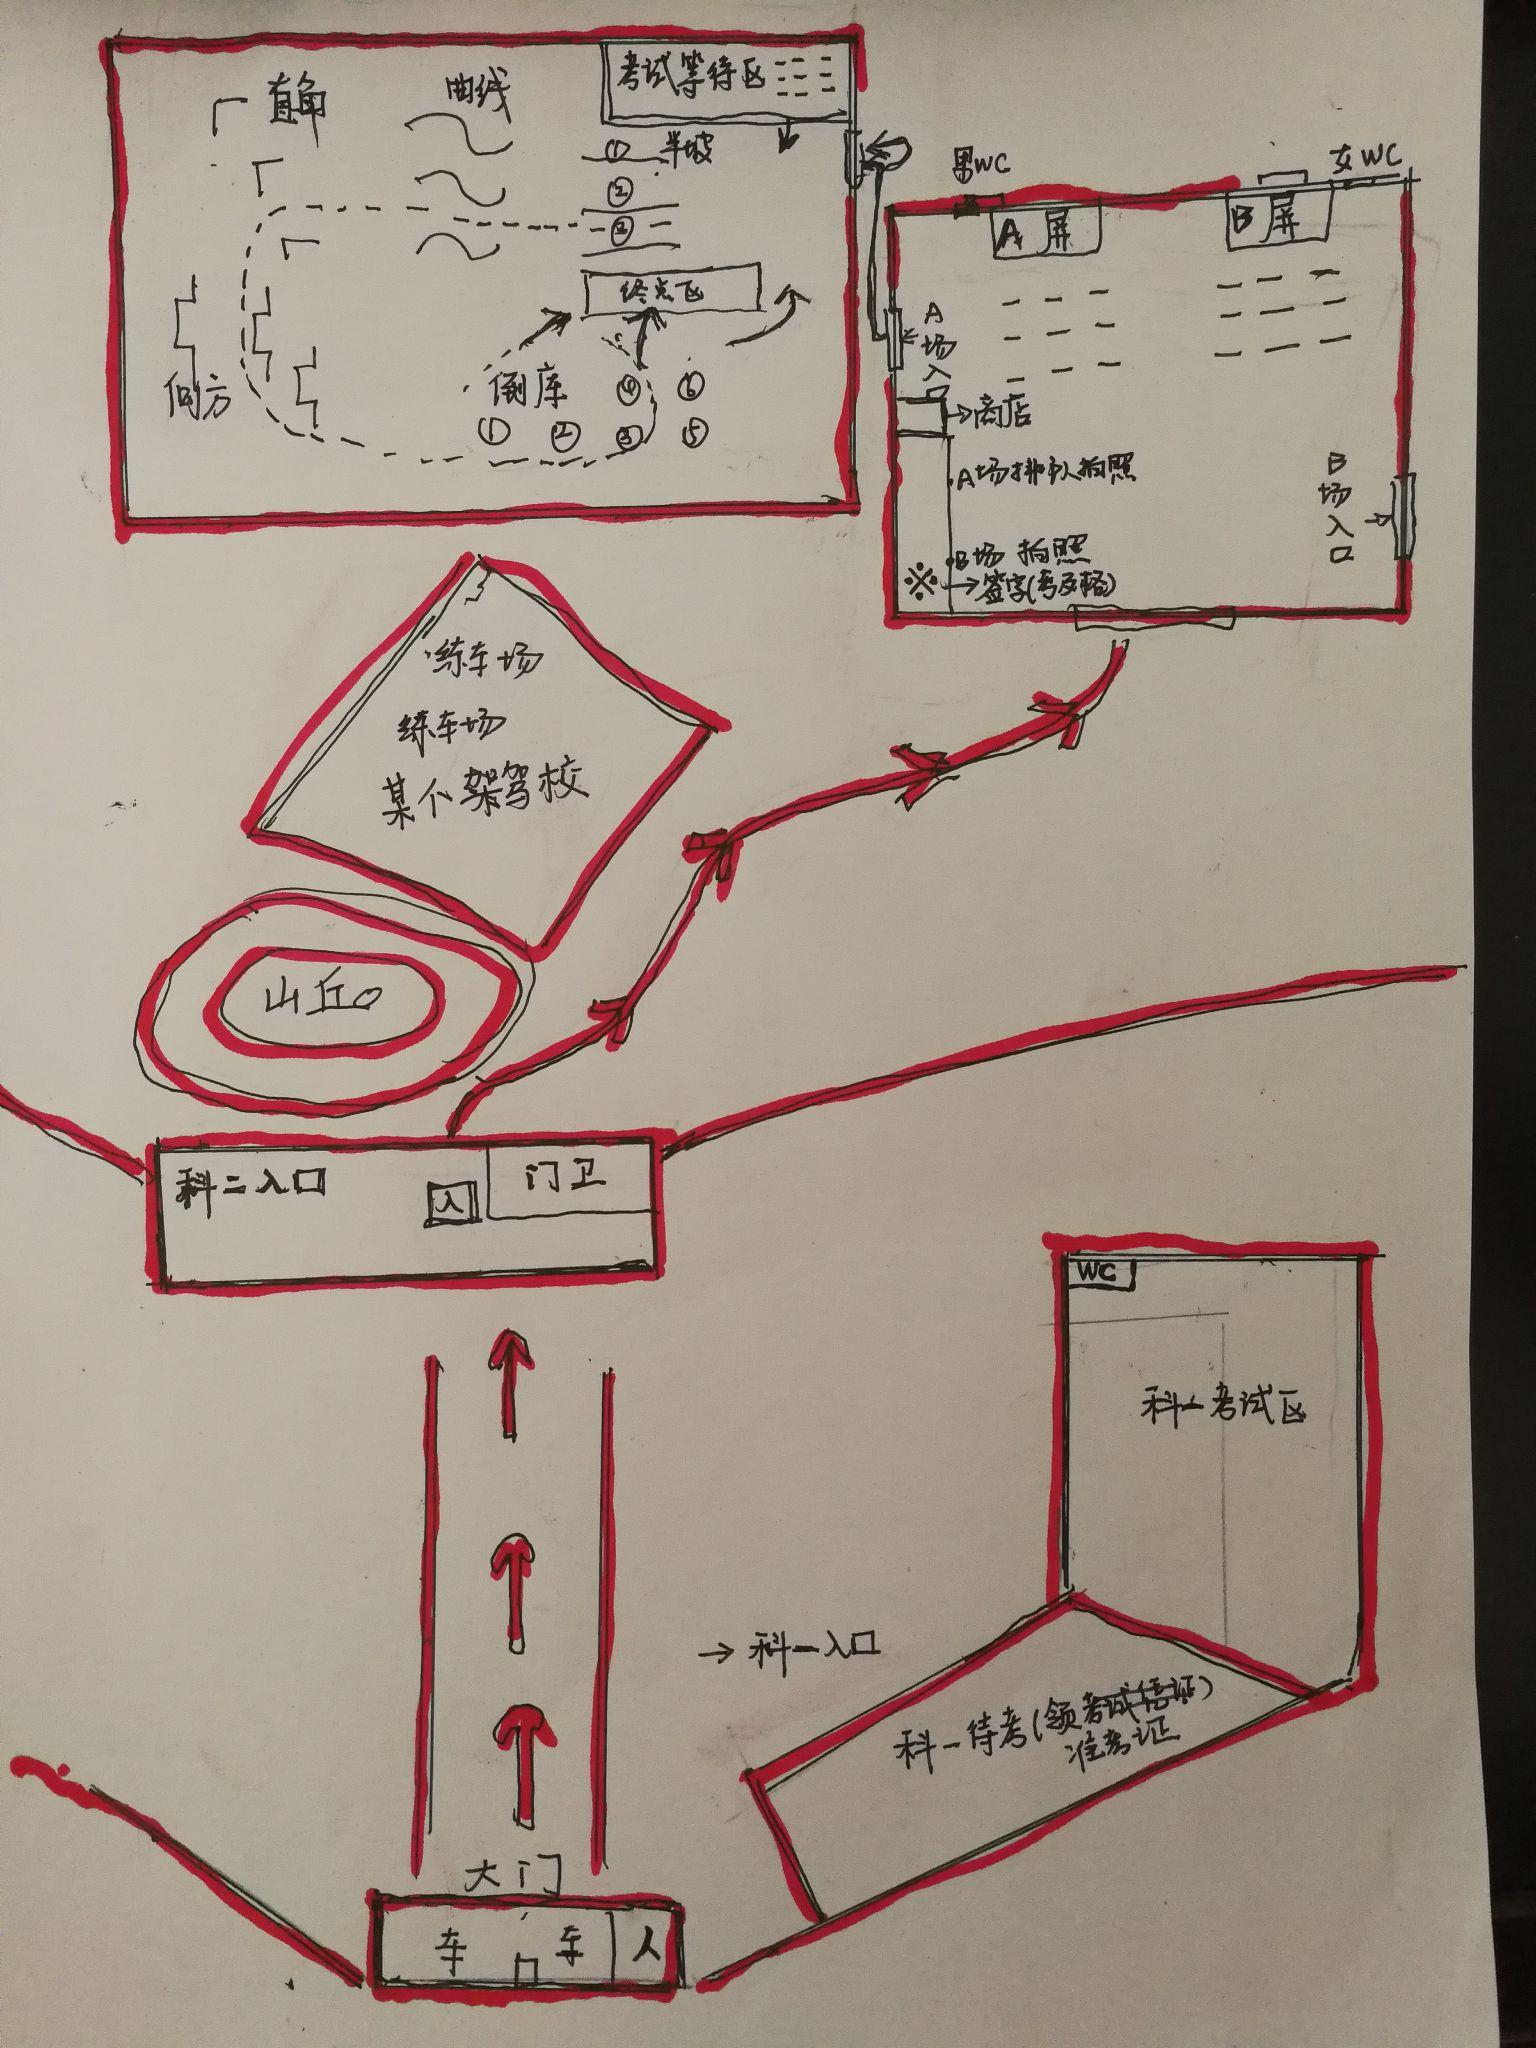 考试等待区
直角
曲线
① 半坡
②
③
终点区
侧方
倒库
④ ⑥
① ② ③ ⑤
男WC
女WC
A 屏
B 屏
A场入口
→商店
A场排队拍照
B场 拍照
※→签字(考及格)
B场入口
练车场
练车场
某个架驾校
山丘
科二入口
入
门卫
WC
科一考试区
→科一入口
科一待考(领考试信证)
准考证
大门
车 车 人